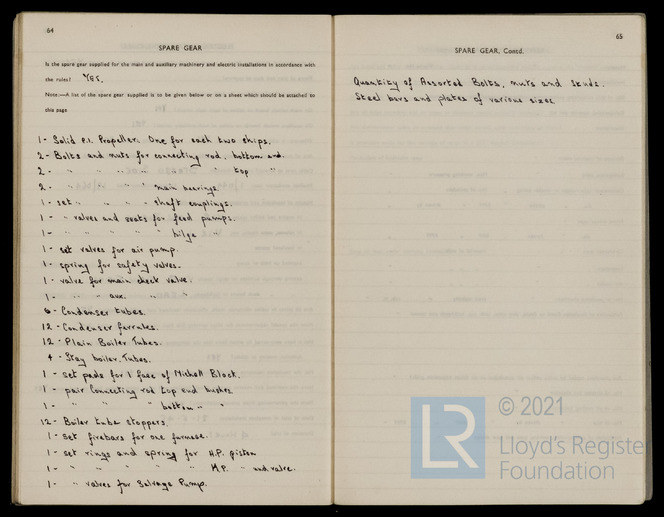 64
SPARE GEAR
Is the spare gear supplied for the main and auxiliary machinery and electric installations in accordance with
the rules? Yes.
Note:—A list of the spare gear supplied is to be given below or on a sheet which should be attached to
this page
1 - Solid C.I. Propeller. One for each two ships.
2 - Bolts and nuts for connecting rod, bottom end.
2 - " " " " " " top "
2 - " " " " main bearings
1 - set " " " shaft couplings.
1 - " valves and seats for feed pumps.
1 - " " " " " bilge "
1 - set valves for air pump.
1 - spring for safety valves.
1 - valve for main check valve.
1 - " " aux. " "
6 - Condenser tubes.
12 - Condenser ferrules.
12 - Plain Boiler Tubes.
4 - Stay boiler Tubes.
1 - set pads for 1 face of Michell Block.
1 - pair Connecting rod top end bushes.
1 - " " " bottom " "
12 - Boiler tube stoppers.
1 - set firebars for one furnace.
1 - set rings and spring for H.P. piston
1 - " " " " " M.P. " and valve.
1 - " valves for Salvage Pump.
65
SPARE GEAR, Contd.
Quantity of Assorted Bolts, nuts and studs.
Steel bars and plates of various sizes
LR
© 2021
Lloyd's Register
Foundation